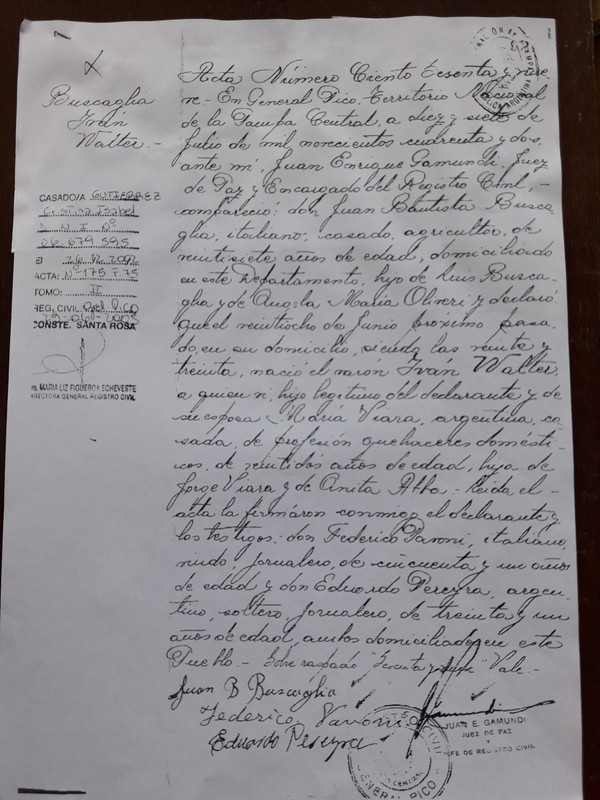 Buscaglia
Iván
Walter.-
CASADO/A GUTIERREZ
Cristina Isabel
D N I Nº
06.679.595
ACTA: Nº 175 F. 75
TOMO: II
REG. CIVIL Gral Pico
CONSTE. SANTA ROSA
MARIA LIZ FIGUEROA ECHEVESTE
DIRECTORA GENERAL REGISTRO CIVIL
Acta Número Ciento Sesenta y nue-
ve- En General Pico, Territorio Nacional
de la Pampa Central, a diez y siete de
Julio de mil novecientos cuarenta y dos,
ante mí, Juan Enrique Gamundi, Juez
de Paz y Encargado del Registro Civil,-
compareció: don Juan Bautista Busca-
glia, italiano, casado, agricultor, de
veintisiete años de edad, domiciliado
en este Departamento, hijo de Luis Busca-
glia y de Angela Maria Oliveri y declaró:
que el veintiocho de Junio próximo pasa-
do, en su domicilio, siendo las veinte y
treinta, nació el varon Ivan Walter,
a quien vi, hijo legítimo del declarante y de
su esposa Maria Viara, argentina, ca-
sada, de profesión quehaceres domésti-
cos, de veintidos años de edad, hija de
Jorge Viara y de Anita Abba.- Leida el
acta la firmáron conmigo el declarante y
los testigos: don Federico Vavoni, italiano,
viudo, jornalero, de cincuenta y un años
de edad y don Eduardo Pereyra, argen-
tino, soltero, jornalero, de treinta y un
años de edad, ambos domiciliados en este
Pueblo.- Sobre raspado "Sesenta y nueve" Vale.-
Juan B Buscaglia
Federico Vavoni
Eduardo Pereyra
JUAN E. GAMUNDI
JUEZ DE PAZ
Y
JEFE DE REGISTRO CIVIL
GENERAL PICO